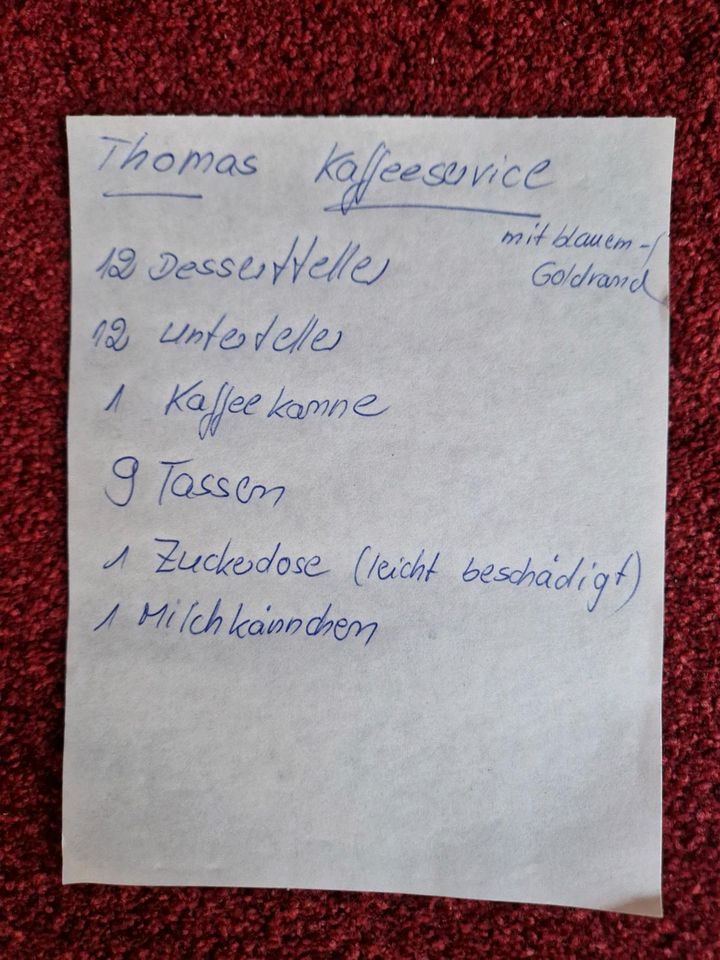 Thomas Kaffeeservice
mit blauem-/
Goldrand
12 Dessertteller
12 Unterteller
1 Kaffeekanne
9 Tassen
1 Zuckerdose (leicht beschädigt)
1 Milchkännchen